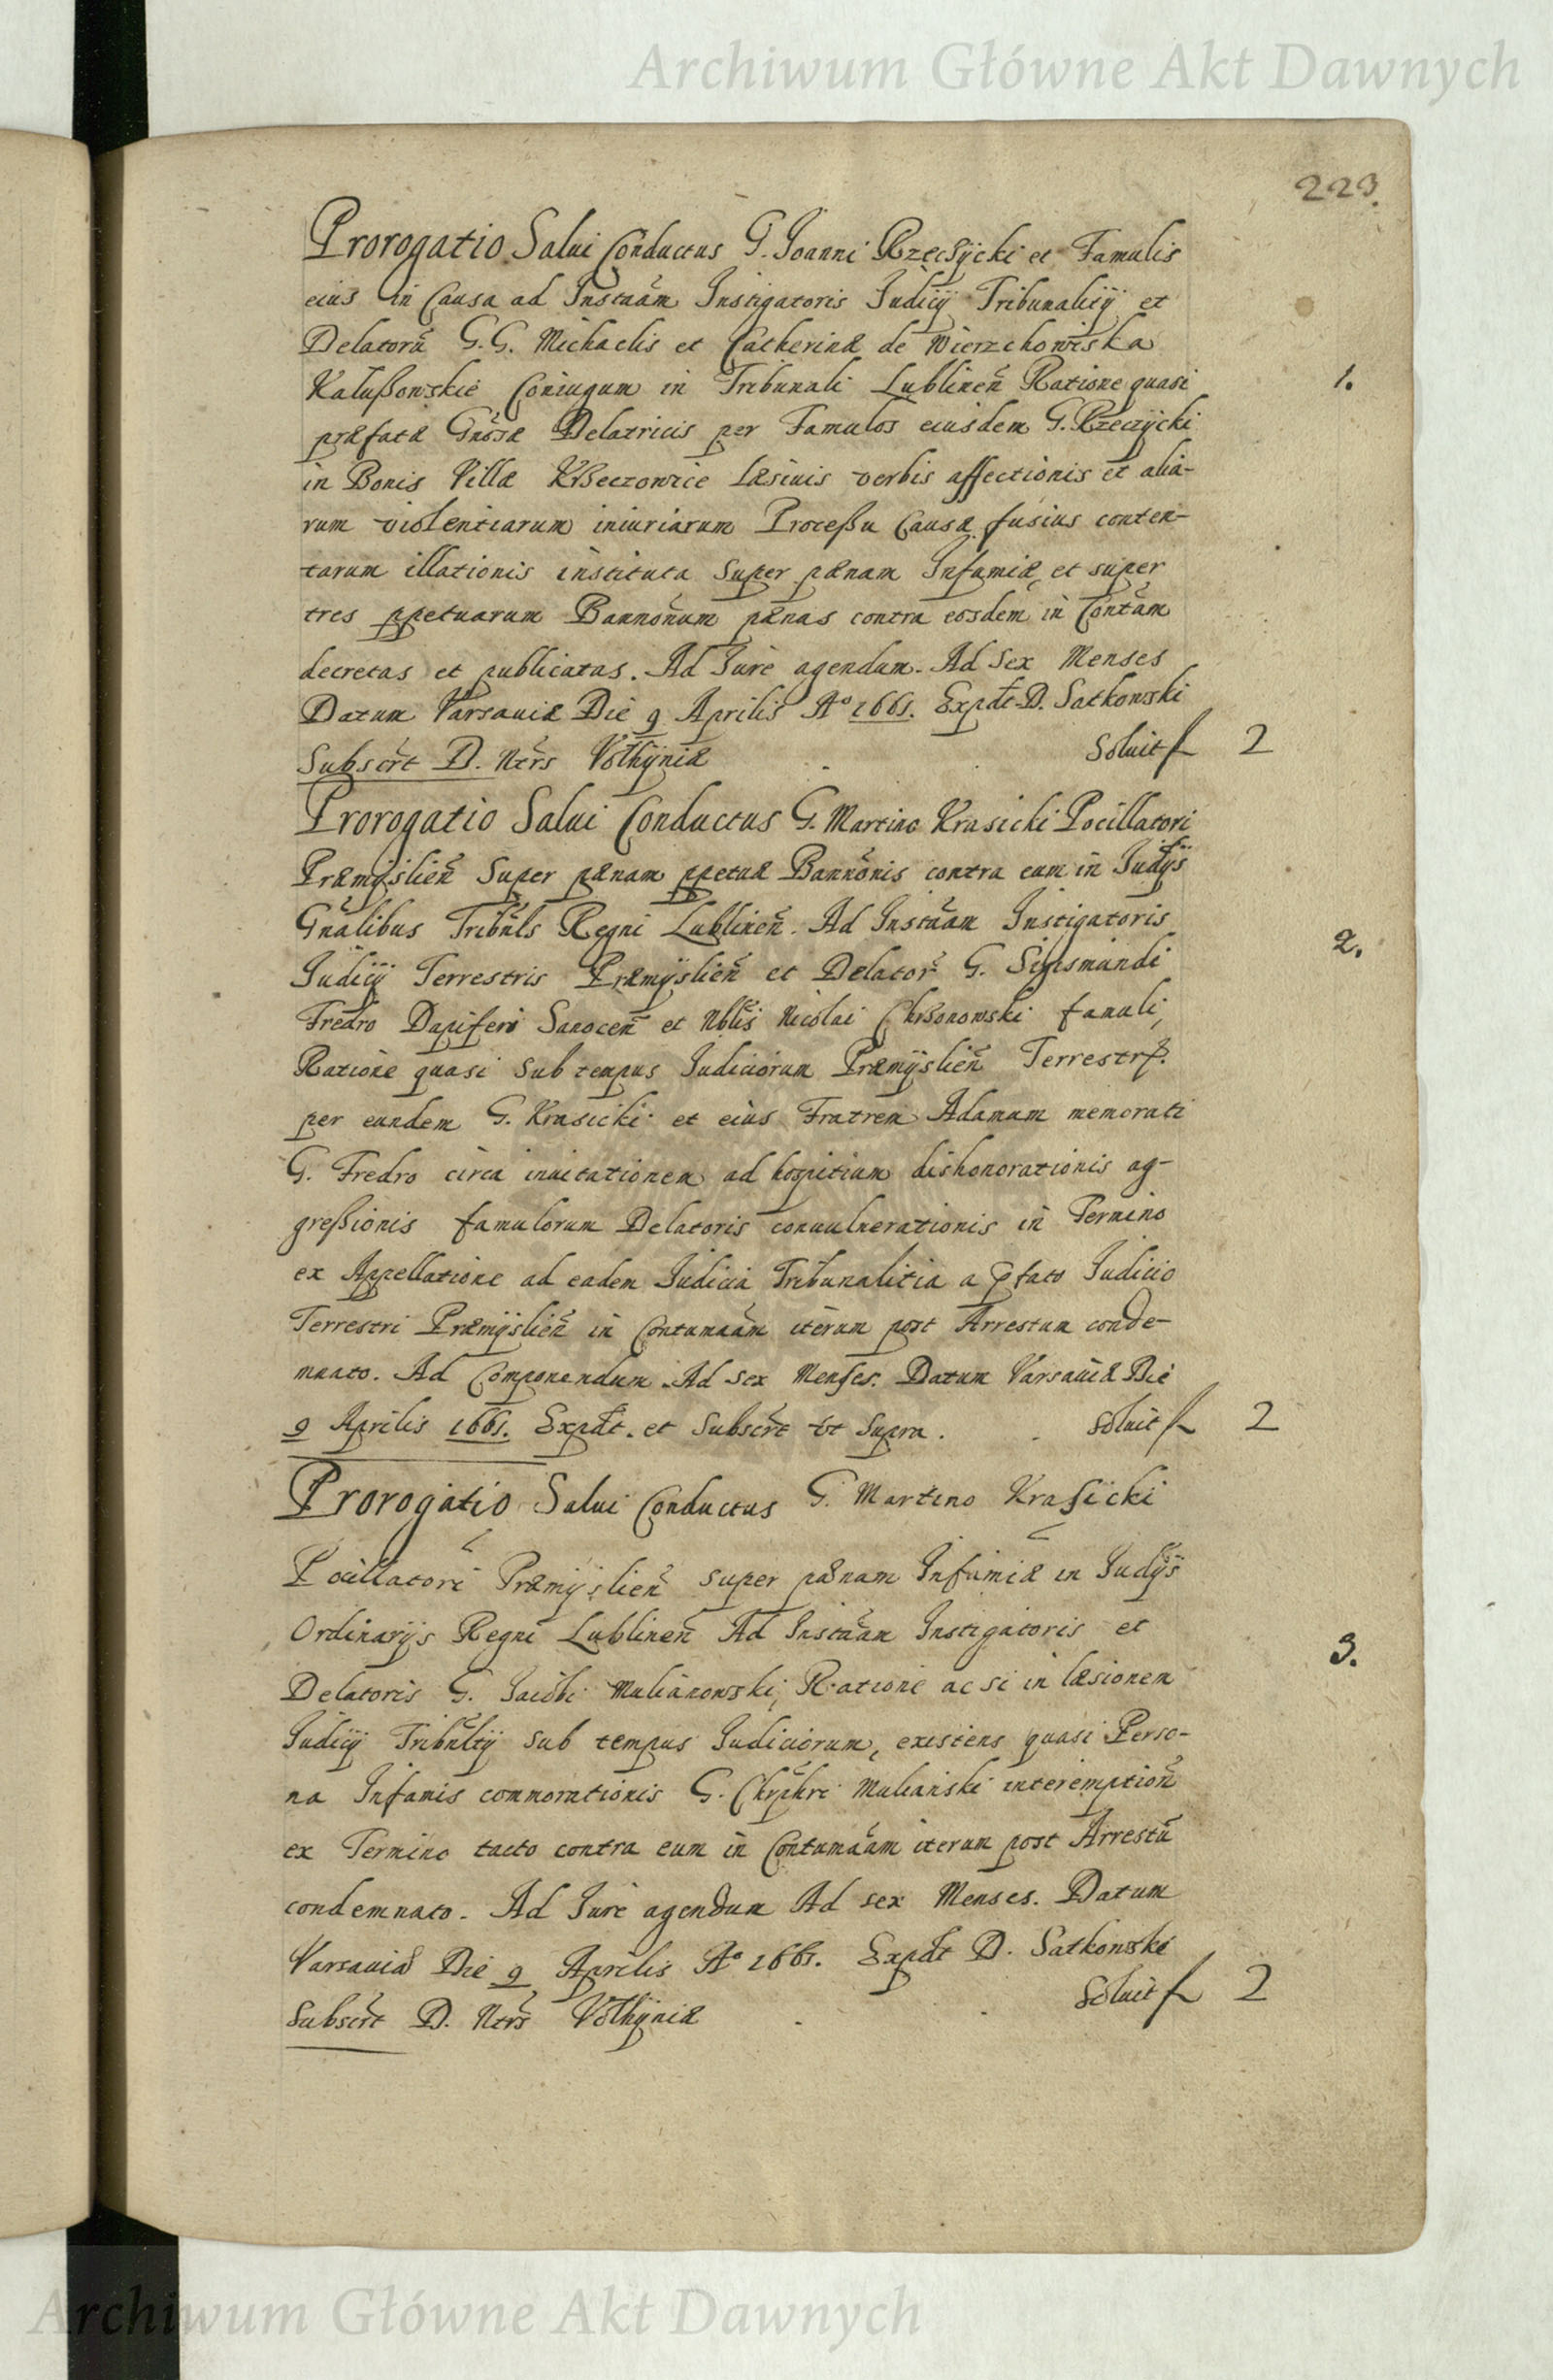 Archiwum Główne Akt Dawnych
223.
Prorogatio Salui Conductus G. Joanni Rzeczÿcki et Famulis
eius in Causa ad Instãam Instigatoris Judicÿ Tribunalitÿ et
Delatorũ G.G. Michaelis et Catherinæ de Wierzchowiska
Kałußowskie Coniugum in Tribunali Lublineñ Ratione quasi
1.
præfatæ Gñosæ Delatricis per Famulos eiusdem G. Rzeczÿcki
in Bonis Villæ Krßeczowice Læsiuis verbis affectionis et alia-
rum violentiarum iniuriarum Proceßu Causæ fusius conten-
tarum illationis instituta Super pænam Infamiæ et super
tres ppetuarum Bannoñum pænas contra eosdem in Contãm
decretas et publicatas. Ad Jure agendum. Ad Sex Menses
Datum Varsauiæ Die 9 Aprilis Aº 1661. Expdt D. Satkowski
Subscrt D. Nrs Volhÿniæ . . Soluit f 2
Prorogatio Salui Conductus G. Martino Krasicki Pocillatori
Præmÿslieñ Super pænam ppetuæ Bannõnis contra eum in Judÿs
Gnãlibus Tribñls Regni Lublineñ. Ad Instãam Instigatoris
2.
Judicÿ Terrestris Præmÿslieñ et Delator G. Sigismundi
Fredro Dapiferi Sanoceñ et Nblis Nicolai Chrßonowski famuli,
Ratione quasi Sub tempus Judiciorum Præmÿslieñ Terrestr.
per eundem G. Krasicki et eius Fratrem Adamum memorati
G. Fredro circa inuitationem ad hospitium dishonorationis ag-
greßionis famulorum Delatoris conuulnerationis in Termino
ex Appellatione ad eadem Judicia Tribunalitia a pfato Judicio
Terrestri Præmÿslieñ in Contumaãm iterum post Arrestum conde-
mnato. Ad Componendum Ad Sex Menses. Datum Varsauiæ Die
9 Aprilis 1661. Expdt. et Subscrt Vt Supra. . Soluit f 2
Prorogatio Salui Conductus G. Martino Krasÿcki
Pocillatori Præmÿslieñ super pænam Infamiæ in Judÿs
Ordinarÿs Regni Lublineñ Ad Instãam Instigatoris et
3.
Delatoris G. Jacobi Mulianowski, Ratione ac si in læsionem
Judicÿ Tribñltÿ Sub tempus Judiciorum, existens quasi Perso-
na Infamis commorationis G. Chrphri Muliański interemption
ex Termino tacto contra eum in Contumaãm iterum post Arrestũ
condemnato. Ad Jure agendum Ad sex Menses. Datum
Varsauiæ Die 9 Aprilis Aº 1661. Expdt D. Satkowski
Subscrt D. Nrs Volhÿniæ . . Soluit f 2
Archiwum Główne Akt Dawnych